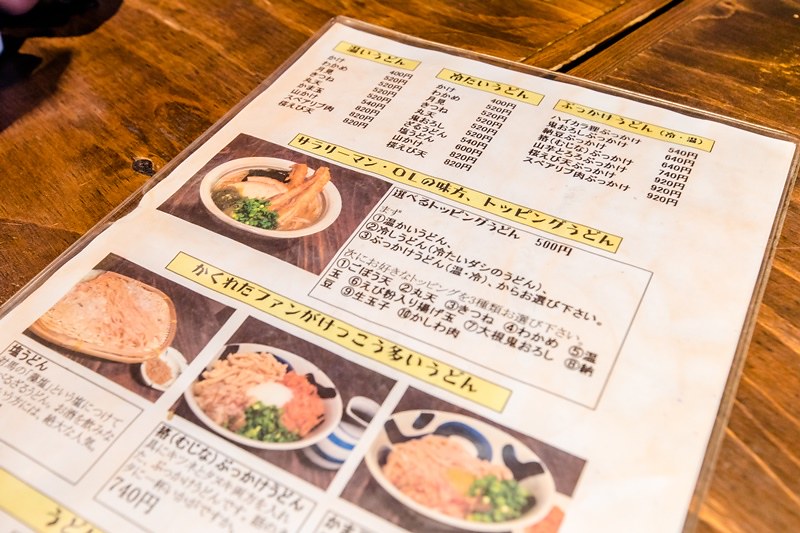 温いうどん
かけ 400円
わかめ 520円
月見 520円
きつね 520円
丸天 520円
かま玉 540円
山かけ 620円
スペアリブ肉 820円
桜えび天 820円
冷たいうどん
かけ 400円
わかめ 520円
月見 520円
きつね 520円
丸天 520円
鬼おろし 520円
ざるうどん 540円
塩うどん 600円
山かけ 620円
桜えび天 820円
ぶっかけうどん(冷・温)
ハイカラ狸ぶっかけ 540円
鬼おろしぶっかけ 640円
納豆ぶっかけ 640円
狢(むじな)ぶっかけ 740円
山芋とろろぶっかけ 920円
桜えび天ぶっかけ 920円
スペアリブ肉ぶっかけ 920円
サラリーマン・OLの味方、トッピングうどん
選べるトッピングうどん 500円
まず
①温かいうどん、
②冷しうどん(冷たいダシのうどん)、
③ぶっかけうどん(温・冷)、からお選び下さい。
次にお好きなトッピングを3種類お選び下さい。
①ごぼう天 ②丸天 ③きつね ④わかめ ⑤温
玉 ⑥えび粉入り揚げ玉 ⑦大根鬼おろし ⑧納
豆 ⑨生玉子 ⑩かしわ肉
かくれたファンがけっこう多いうどん
塩うどん
の藻塩という塩につけて
るざるうどん。お酒を飲みな
いう方には、絶大な人気。
狢(むじな)ぶっかけうどん
具にキツネとタヌキ両方を入れ
た、ぶっかけうどんです。
に一杯いかがですか。
740円
うどん